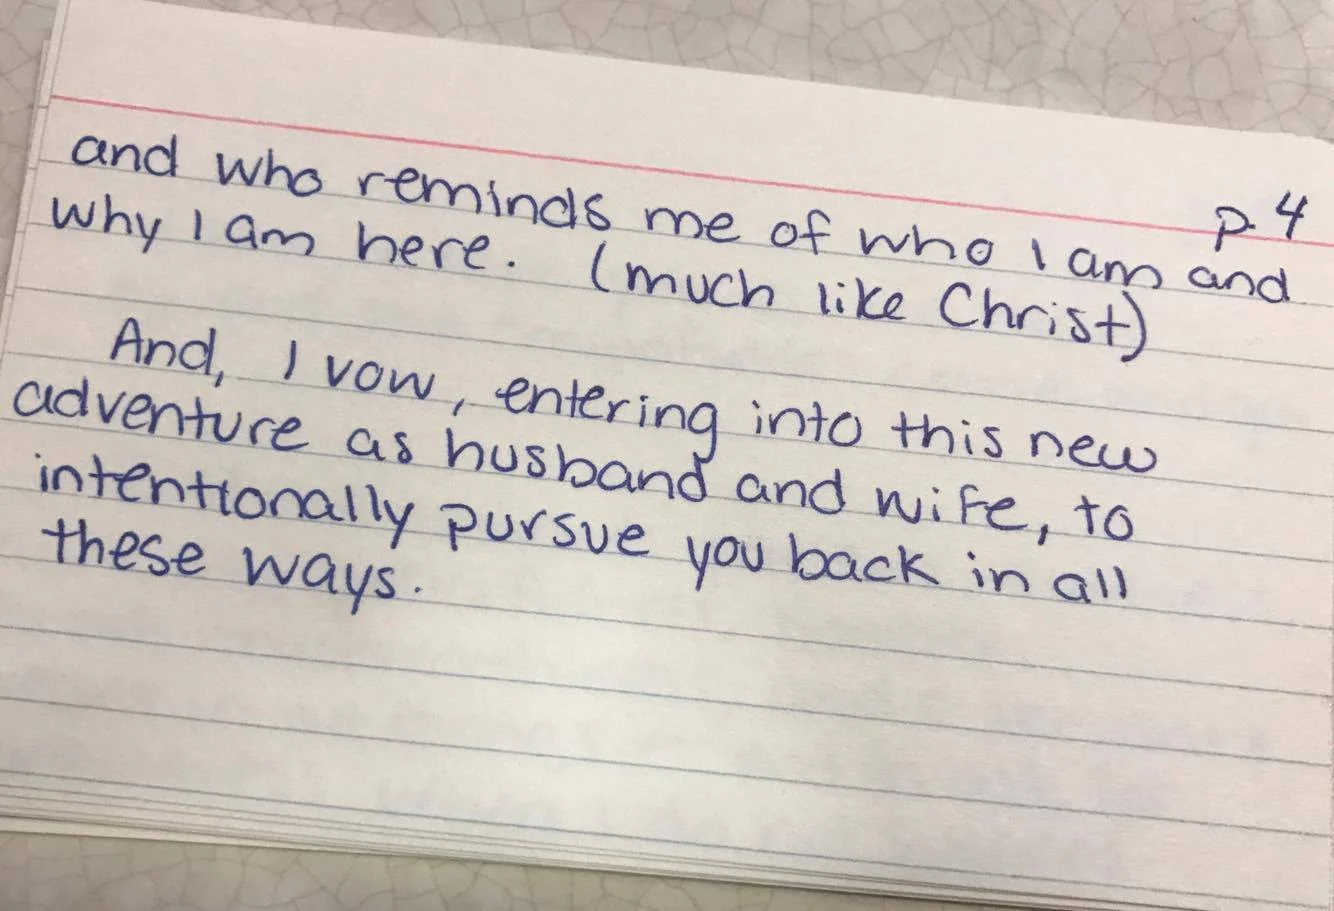 p. 4
and who reminds me of who I am and
why I am here. (much like Christ)
And, I vow, entering into this new
adventure as husband and wife, to
intentionally pursue you back in all
these ways.